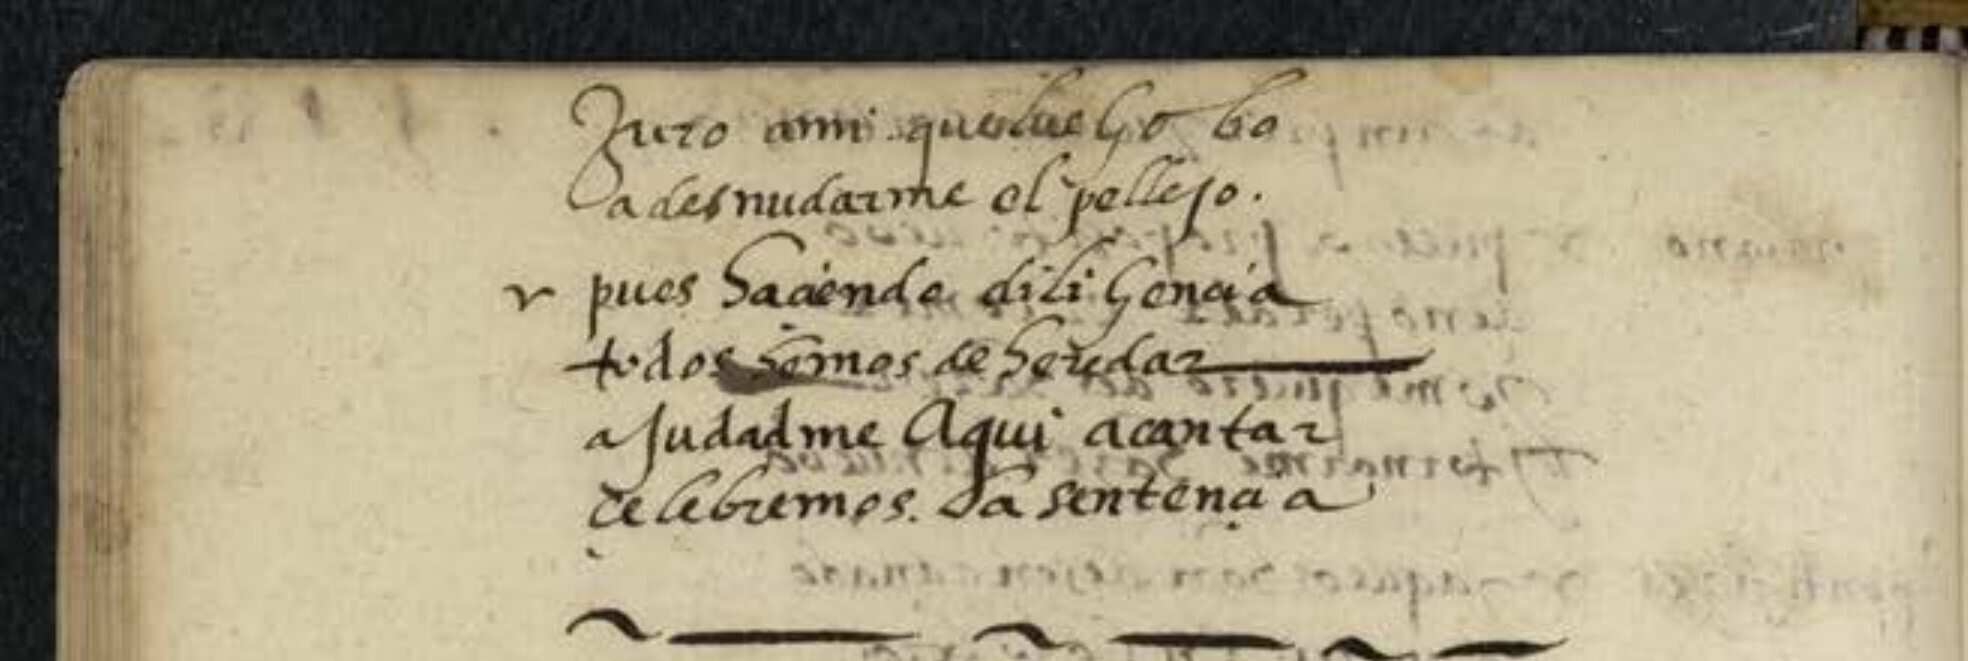 Juro ami que luego bo
a desnudarme el pellejo.
v pues haciendo diligencia
todos hemos de heredar
ajudadme Aqui acantar
çelebremos. La sentençia